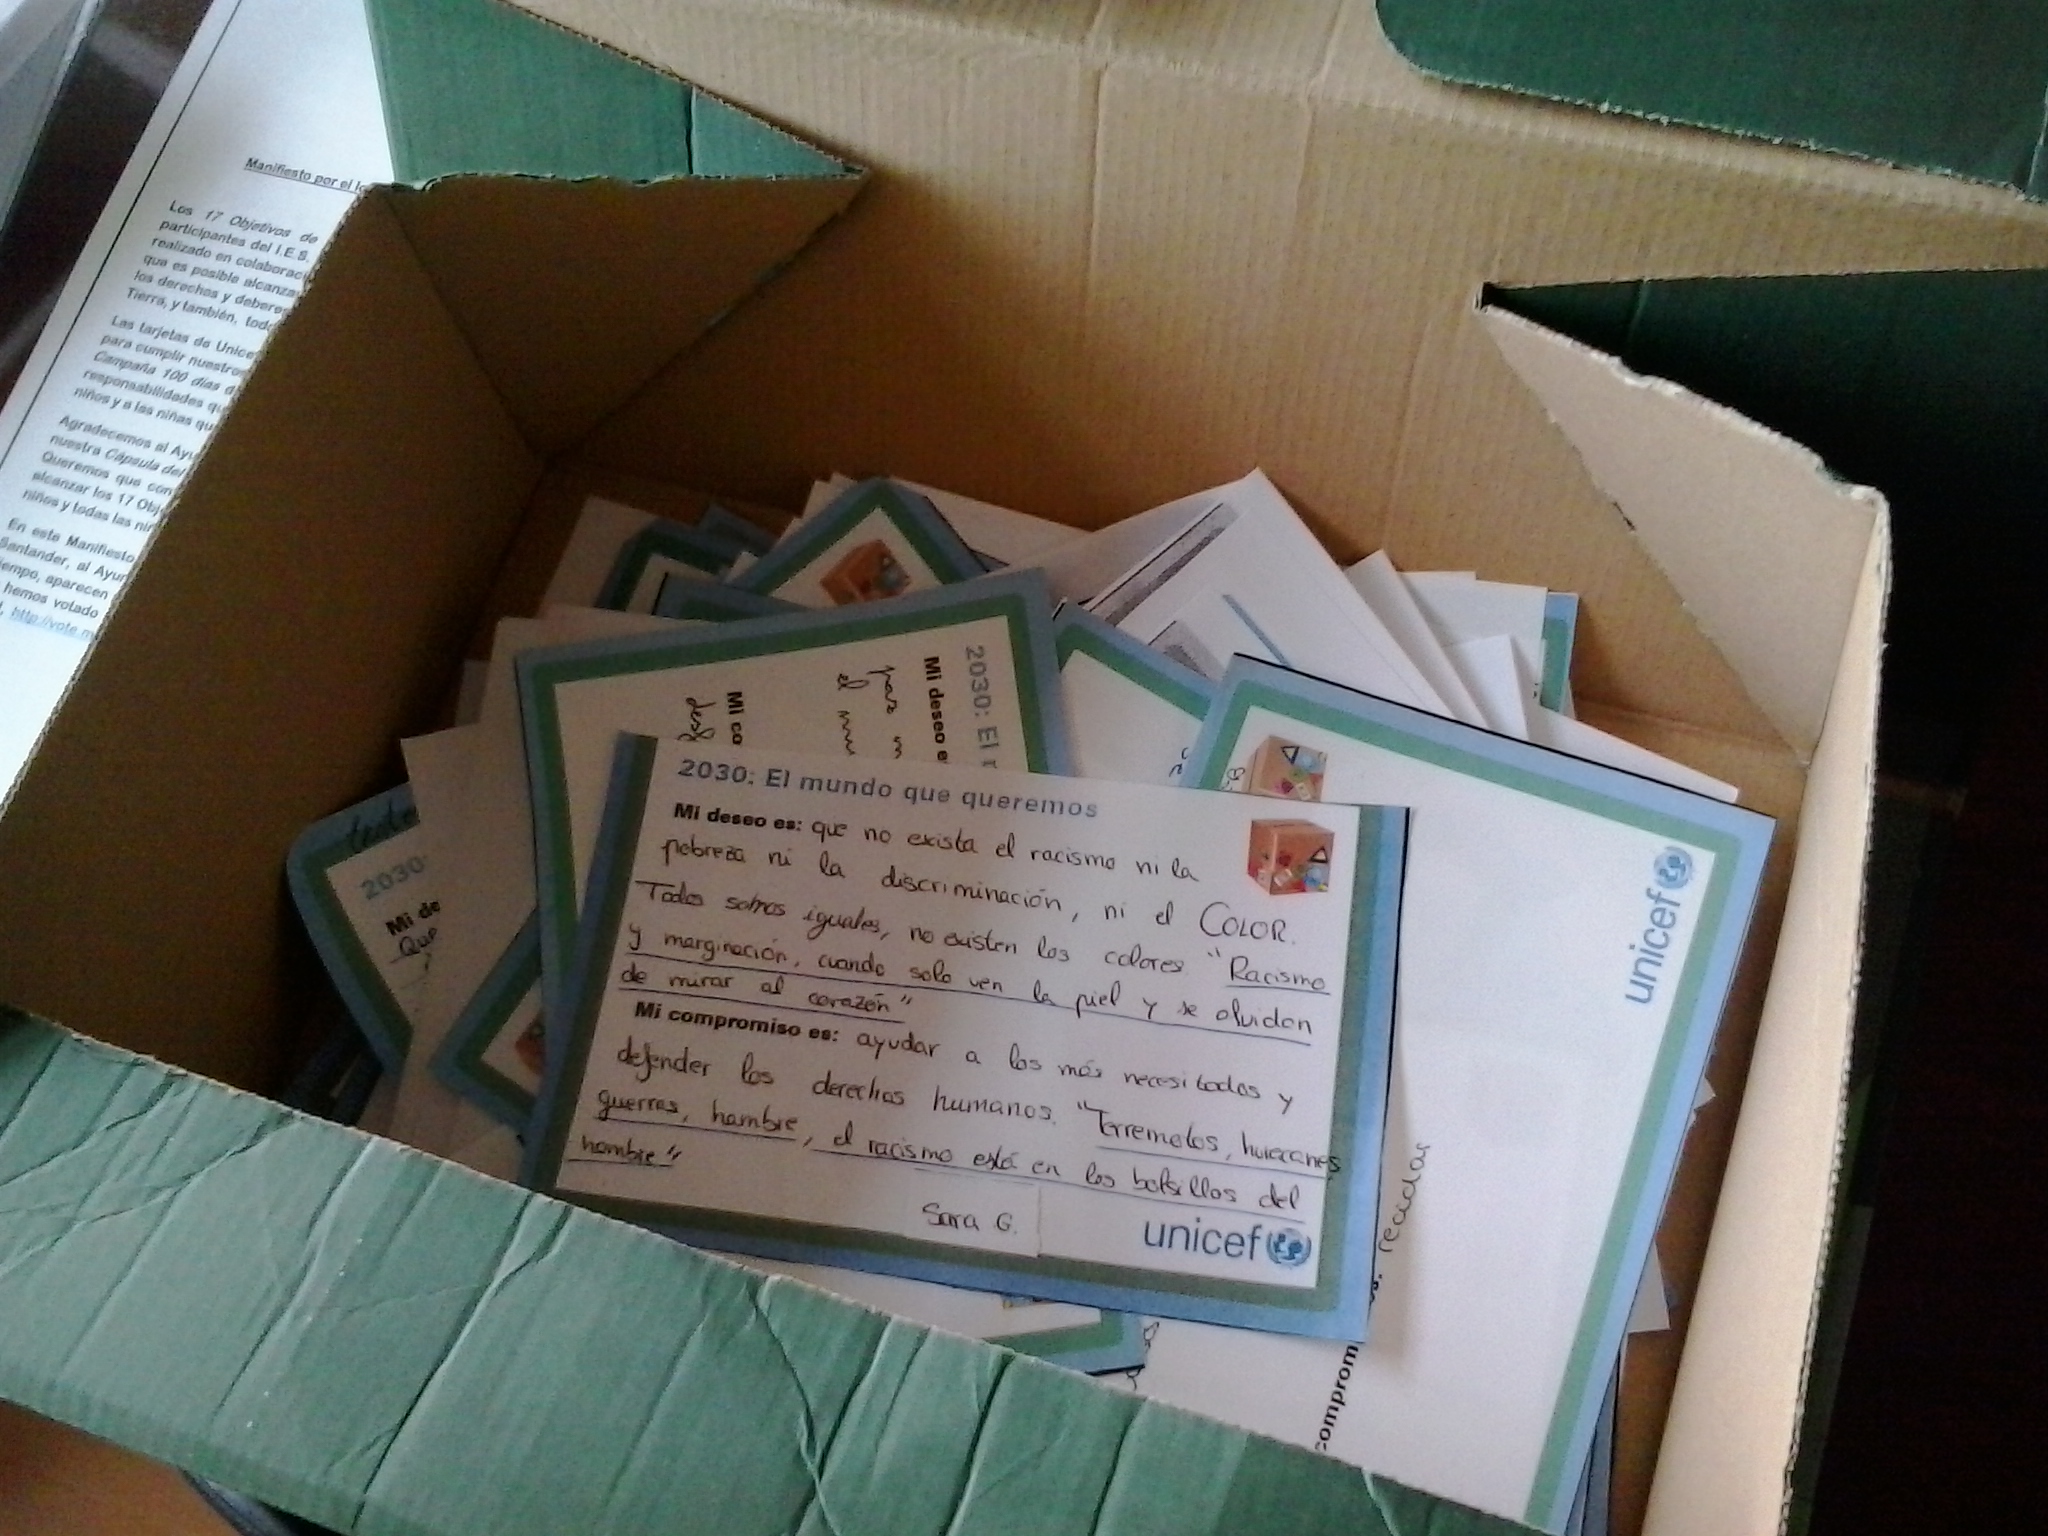 Manifiesto por el
Los 17 Objetivos de
participantes del I.E.S.
realizado en colaborac
que es posible alcanza
los derechos y debere
Tierra, y también, tod
Las tarjetas de Unice
para cumplir nuestros
Campaña 100 días d
responsabilidades qu
niños y a las niñas qu
Agradecemos al Ayu
nuestra Cápsula del
Queremos que con
alcanzar los 17 Obj
niños y todas las niñ
En este Manifiesto
Santander, al Ayun
iempo, aparecen
hemos votado
http://vote.m
2030: El
Mi deseo e
para m
el mun
Mi co
2030
Mi de
Que
2030: El mundo que queremos
Mi deseo es: que no exista el racismo ni la
pobreza ni la discriminación, ni el COLOR.
Todos somos iguales, no existen los colores "Racismo
y marginación, cuando solo ven la piel y se olvidan
de mirar al corazón"
Mi compromiso es: ayudar a los más necesitados y
defender los derechos humanos. "Terremotos, huracanes,
guerras, hambre, el racismo está en los bolsillos del
hombre"
Sara G.
unicef
unicef
comprom
reciclar